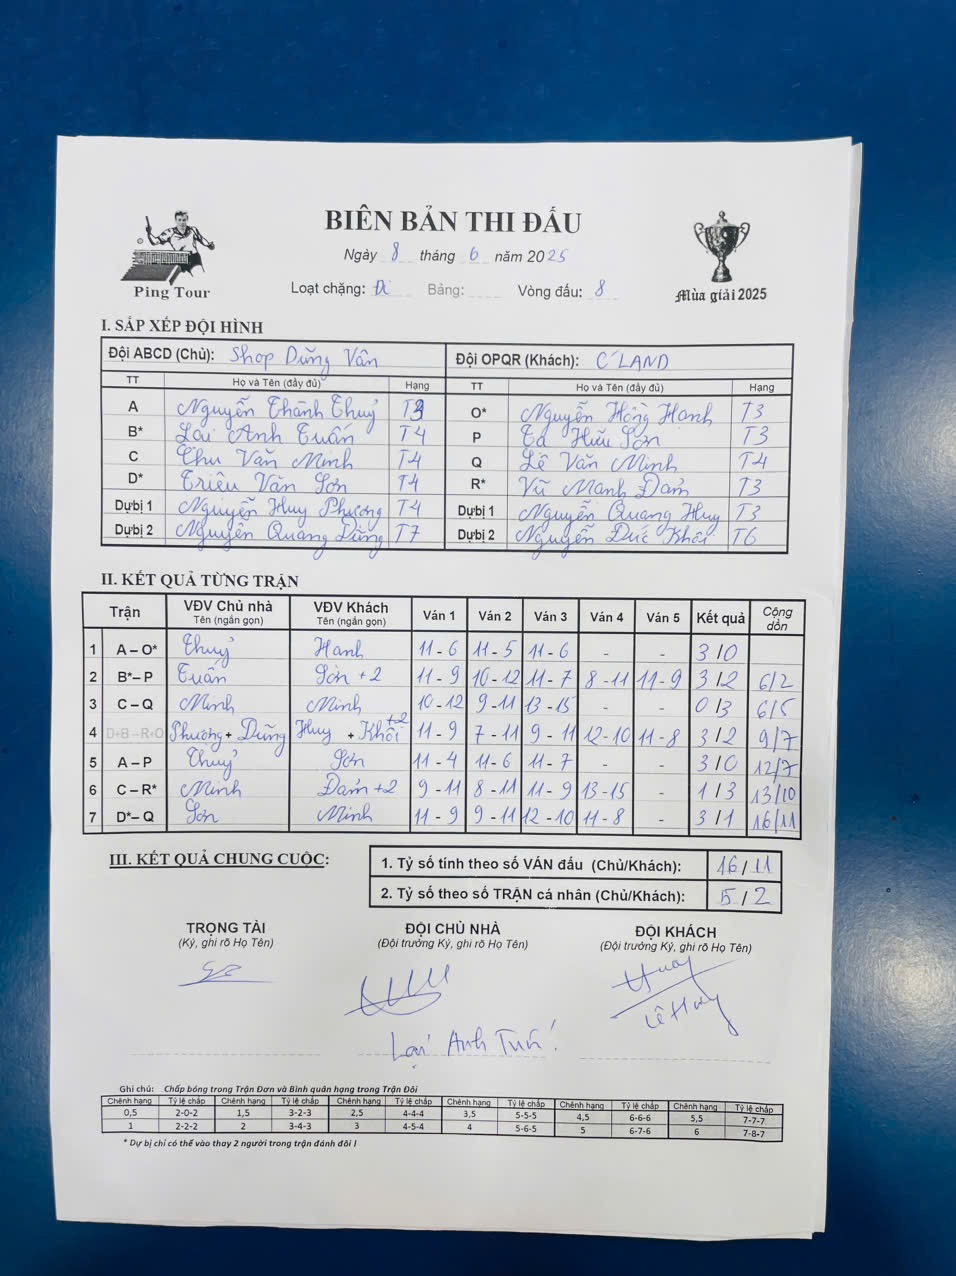 BIÊN BẢN THI ĐẤU
Ngày 8 tháng 6 năm 2025
Ping Tour
Loạt chặng: Đi Bảng: Vòng đấu: 8
Mùa giải 2025
I. SẮP XẾP ĐỘI HÌNH
Đội ABCD (Chủ): Shop Dũng Vân Đội OPQR (Khách): C'LAND
TT Họ và Tên (đầy đủ) Hạng TT Họ và Tên (đầy đủ) Hạng
A Nguyễn Thành Thuỷ T3 O* Nguyễn Hồng Hạnh T3
B* Lại Anh Tuấn T4 P Tạ Hữu Sơn T3
C Chu Văn Minh T4 Q Lê Văn Minh T4
D* Triệu Văn Sơn T4 R* Vũ Mạnh Đảm T3
Dự bị 1 Nguyễn Huy Phương T4 Dự bị 1 Nguyễn Quang Huy T3
Dự bị 2 Nguyễn Quang Dũng T7 Dự bị 2 Nguyễn Đức Khôi T6
II. KẾT QUẢ TỪNG TRẬN
Trận VĐV Chủ nhà Tên (ngắn gọn) VĐV Khách Tên (ngắn gọn) Ván 1 Ván 2 Ván 3 Ván 4 Ván 5 Kết quả Cộng dồn
1 A – O* Thuỷ Hạnh 11 - 6 11 - 5 11 - 6 - - 3 / 0
2 B* – P Tuấn Sơn +2 11 - 9 10 - 12 11 - 7 8 - 11 11 - 9 3 / 2 6/2
3 C – Q Minh Minh 10 - 12 9 - 11 13 - 15 - - 0 / 3 6/5
4 D+B – R+O Phương + Dũng Huy + Khôi +2 11 - 9 7 - 11 9 - 11 12 - 10 11 - 8 3 / 2 9/7
5 A – P Thuỷ Sơn 11 - 4 11 - 6 11 - 7 - - 3 / 0 12/7
6 C – R* Minh Đảm +2 9 - 11 8 - 11 11 - 9 13 - 15 - 1 / 3 13/10
7 D* – Q Sơn Minh 11 - 9 9 - 11 12 - 10 11 - 8 - 3 / 1 16/11
III. KẾT QUẢ CHUNG CUỘC:
1. Tỷ số tính theo số VÁN đấu (Chủ/Khách): 16 / 11
2. Tỷ số theo số TRẬN cá nhân (Chủ/Khách): 5 / 2
TRỌNG TÀI ĐỘI CHỦ NHÀ ĐỘI KHÁCH
(Ký, ghi rõ Họ Tên) (Đội trưởng Ký, ghi rõ Họ Tên) (Đội trưởng Ký, ghi rõ Họ Tên)
Huy
Lê Huy
Lại Anh Tuấn
Ghi chú: Chấp bóng trong Trận Đơn và Bình quân hạng trong Trận Đôi
Chênh hạng Tỷ lệ chấp Chênh hạng Tỷ lệ chấp Chênh hạng Tỷ lệ chấp Chênh hạng Tỷ lệ chấp Chênh hạng Tỷ lệ chấp Chênh hạng Tỷ lệ chấp
0,5 2-0-2 1,5 3-2-3 2,5 4-4-4 3,5 5-5-5 4,5 6-6-6 5,5 7-7-7
1 2-2-2 2 3-4-3 3 4-5-4 4 5-6-5 5 6-7-6 6 7-8-7
* Dự bị chỉ có thể vào thay 2 người trong trận đánh đôi !